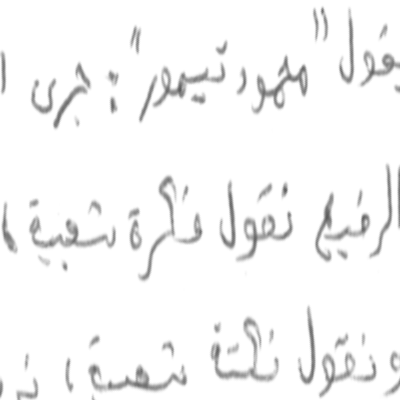 يقول "محمود تيمور": جرى
الرفيع نقول فكرة شعبية،
ونقول نكتة شعبية،